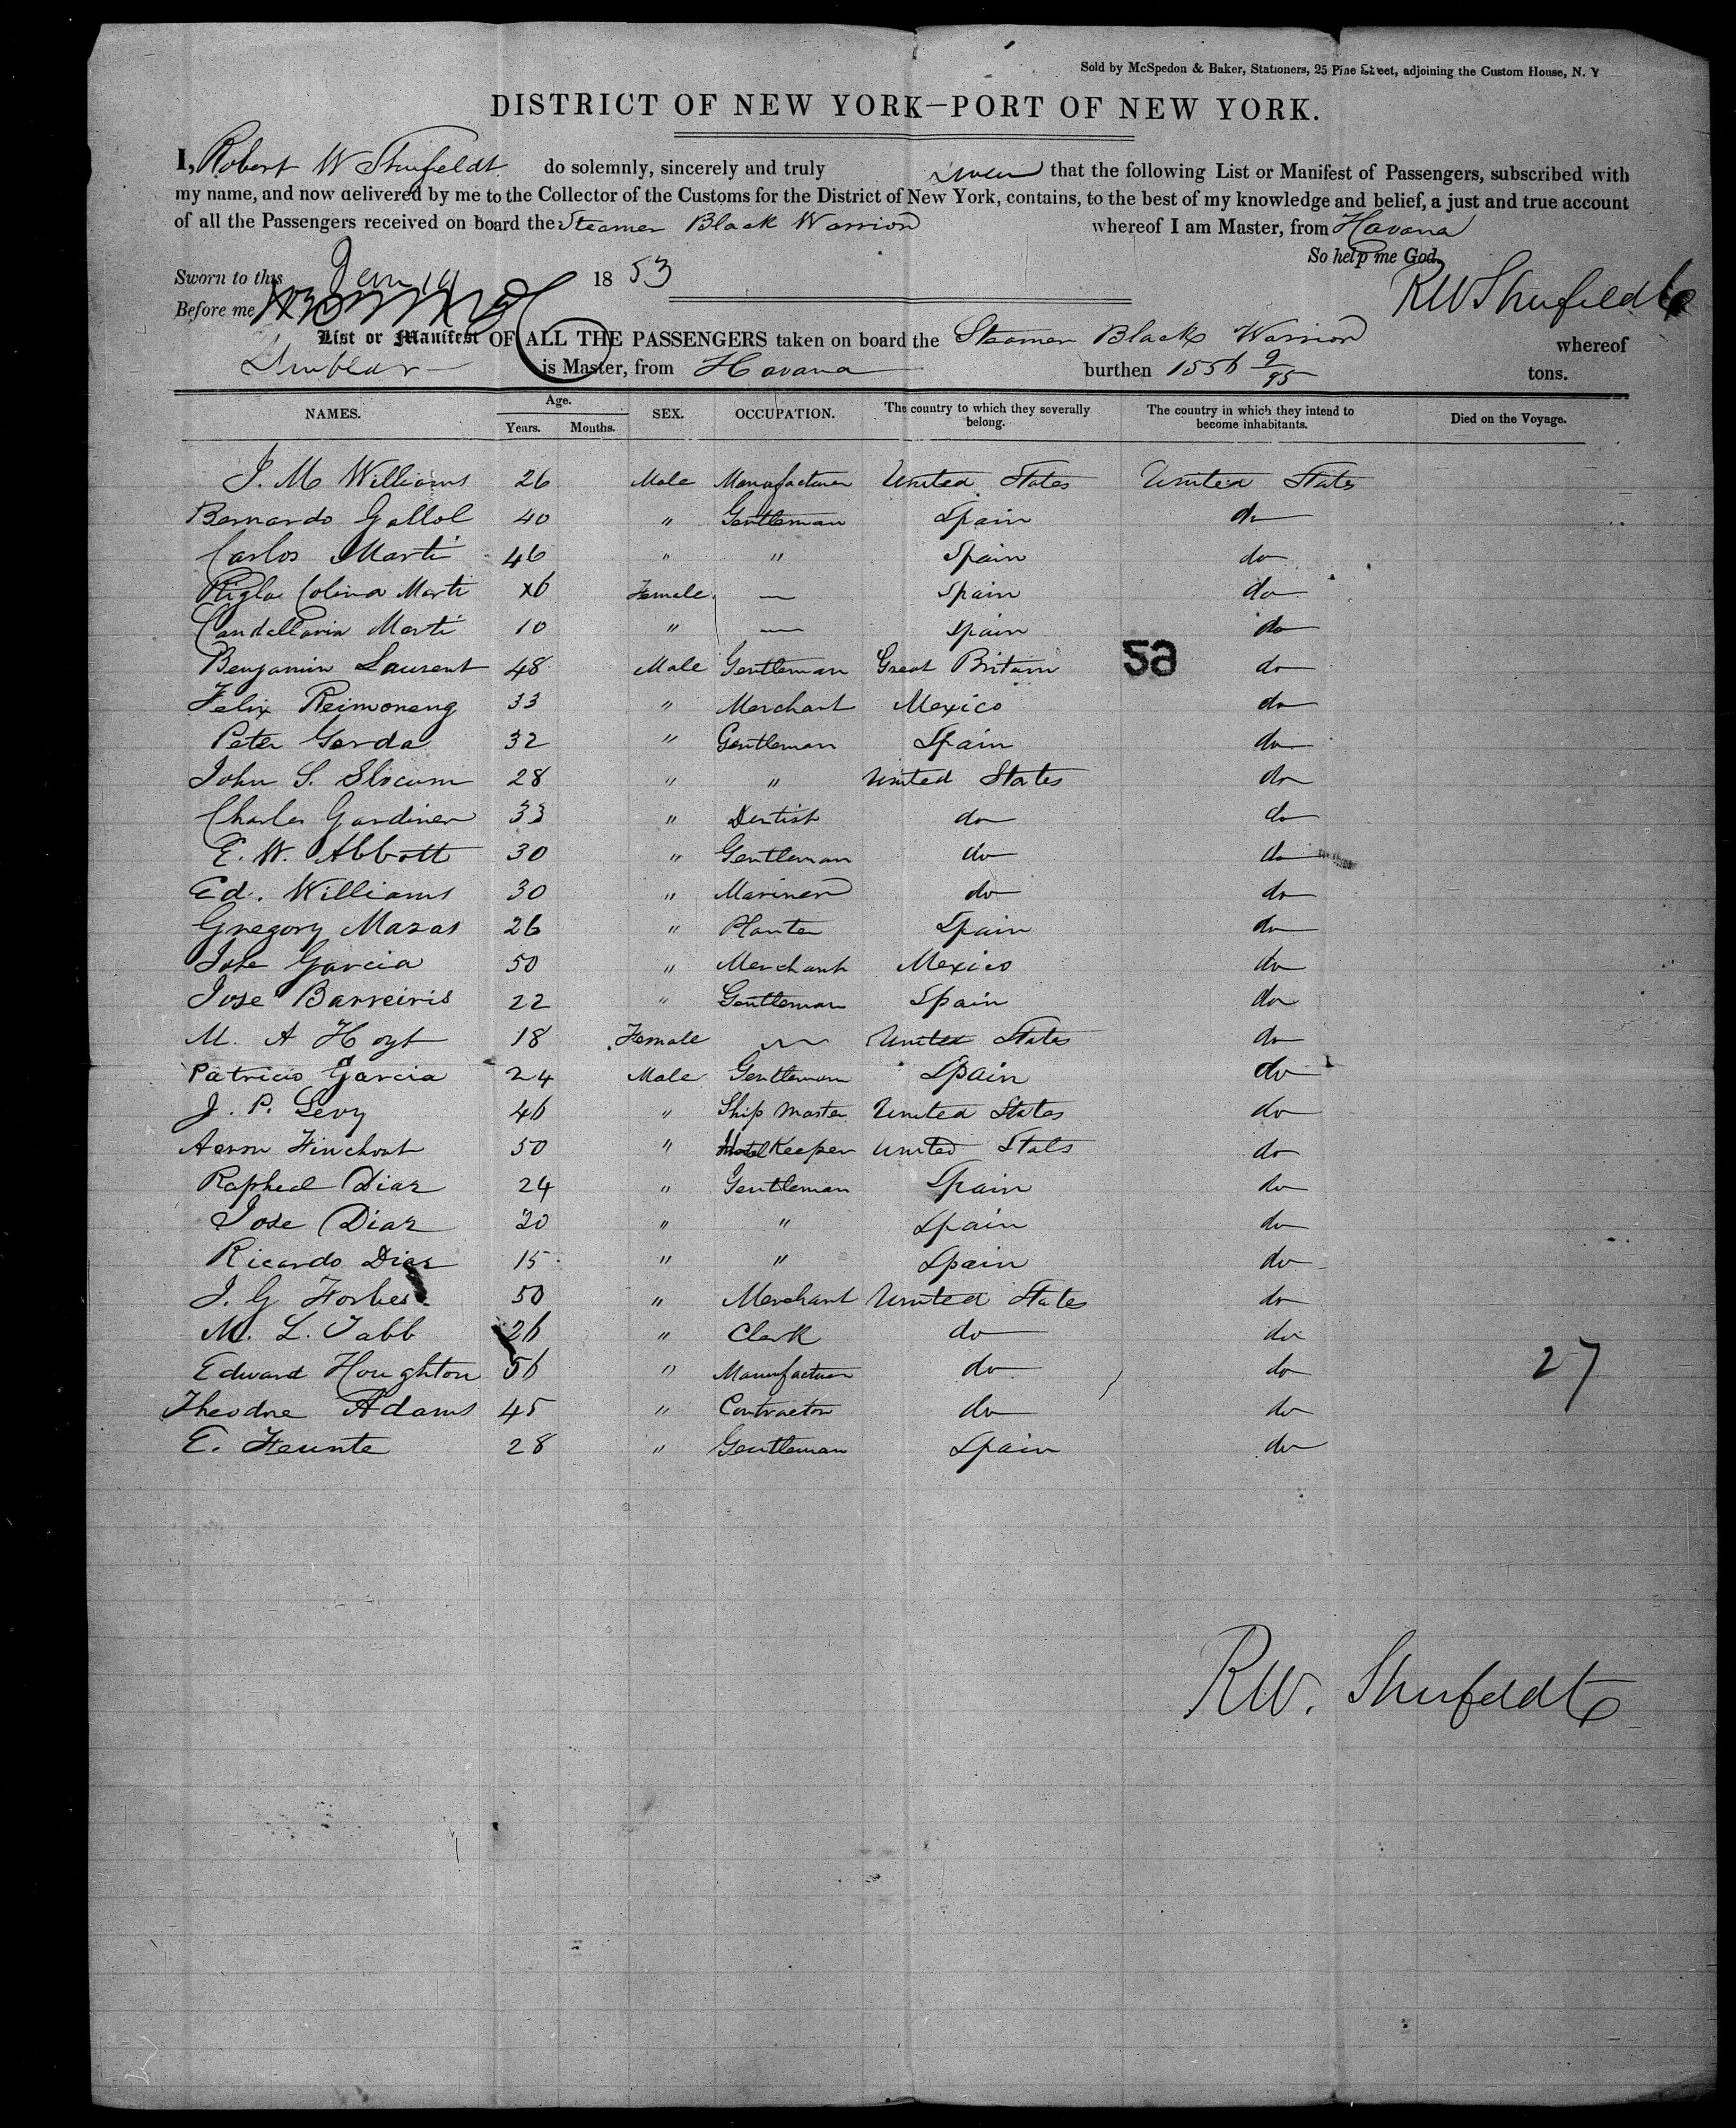 Sold by McSpedon & Baker, Stationers, 25 Pine Street, adjoining the Custom House, N. Y
DISTRICT OF NEW YORK—PORT OF NEW YORK.
I, Robert W Shufeldt do solemnly, sincerely and truly swear that the following List or Manifest of Passengers, subscribed with
my name, and now delivered by me to the Collector of the Customs for the District of New York, contains, to the best of my knowledge and belief, a just and true account
of all the Passengers received on board the Steamer Black Warrior whereof I am Master, from Havana
So help me God.
Sworn to this Jan 1853
RW Shufeldt
Before me
List or Manifest OF ALL THE PASSENGERS taken on board the Steamer Black Warrior whereof
is Master, from Havana burthen 1556 9/95 tons.
NAMES. Age. Years. Months. SEX. OCCUPATION. The country to which they severally belong. The country in which they intend to become inhabitants. Died on the Voyage.
J. M Williams 26 Male Manufacturer United States United States
Bernardo Gallol 40 " Gentleman Spain do
Carlos Marti 46 " " Spain do
Rigla Colina Marti Female — Spain do
Candellaria Marti 10 " — Spain do
Benjamin Laurent 48 Male Gentleman Great Britain do
59
Felix Reimoneng 33 " Merchant Mexico do
Peter Gerda 32 " Gentleman Spain do
John S. Slocum 28 " " United States do
Charles Gardiner 33 " Dentist do do
E. W. Abbott 30 " Gentleman do do
Ed. Williams 30 " Mariner do do
Gregory Mazas 26 " Planter Spain do
Jose Garcia 50 " Merchant Mexico do
Jose Barreiris 22 " Gentleman Spain do
M. A Hoyt 18 Female — United States do
Patricio Garcia 24 Male Gentleman Spain do
J. P. Levy 46 " Ship Master United States do
Aaron Finchout 50 " Hotel Keeper United States do
Raphael Diaz 24 " Gentleman Spain do
Jose Diaz 20 " " Spain do
Ricardo Diaz 15 " " Spain do
J. G Forbes 50 " Merchant United States do
M. L. Tabb 26 " Clerk do do
Edward Houghton 56 " Manufacturer do do 27
Theodore Adams 45 " Contractor do do
E. Feunte 28 " Gentleman Spain do
RW. Shufeldt